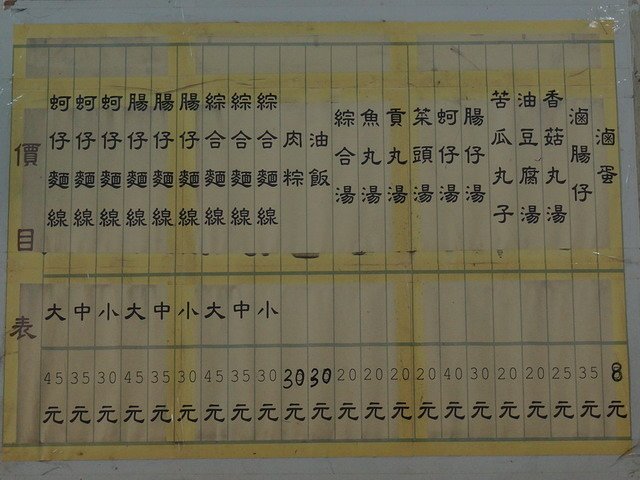 價目表
蚵仔麵線 大 45元
蚵仔麵線 中 35元
蚵仔麵線 小 30元
腸仔麵線 大 45元
腸仔麵線 中 35元
腸仔麵線 小 30元
綜合麵線 大 45元
綜合麵線 中 35元
綜合麵線 小 30元
肉粽 30元
油飯 30元
綜合湯 20元
魚丸湯 20元
貢丸湯 20元
菜頭湯 20元
蚵仔湯 40元
腸仔湯 30元
苦瓜丸子 20元
油豆腐湯 20元
香菇丸湯 25元
滷腸仔 35元
滷蛋 8元